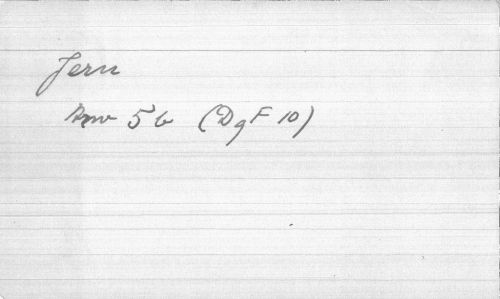 Jern
Arw 5b (DgF 10)